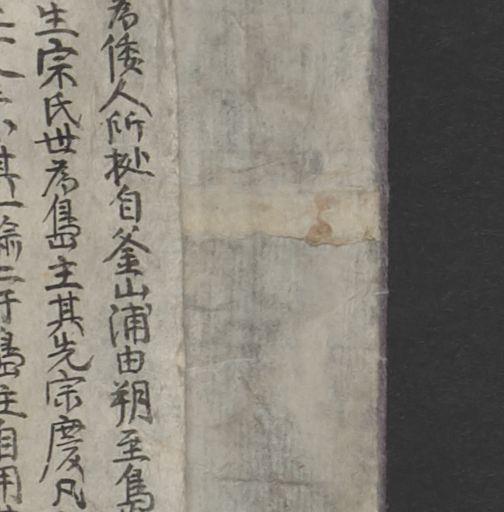 為倭人所㧞自釜山浦由朔至島
生宗氏世為島主其先宗慶凡
其一輸二于島主自用